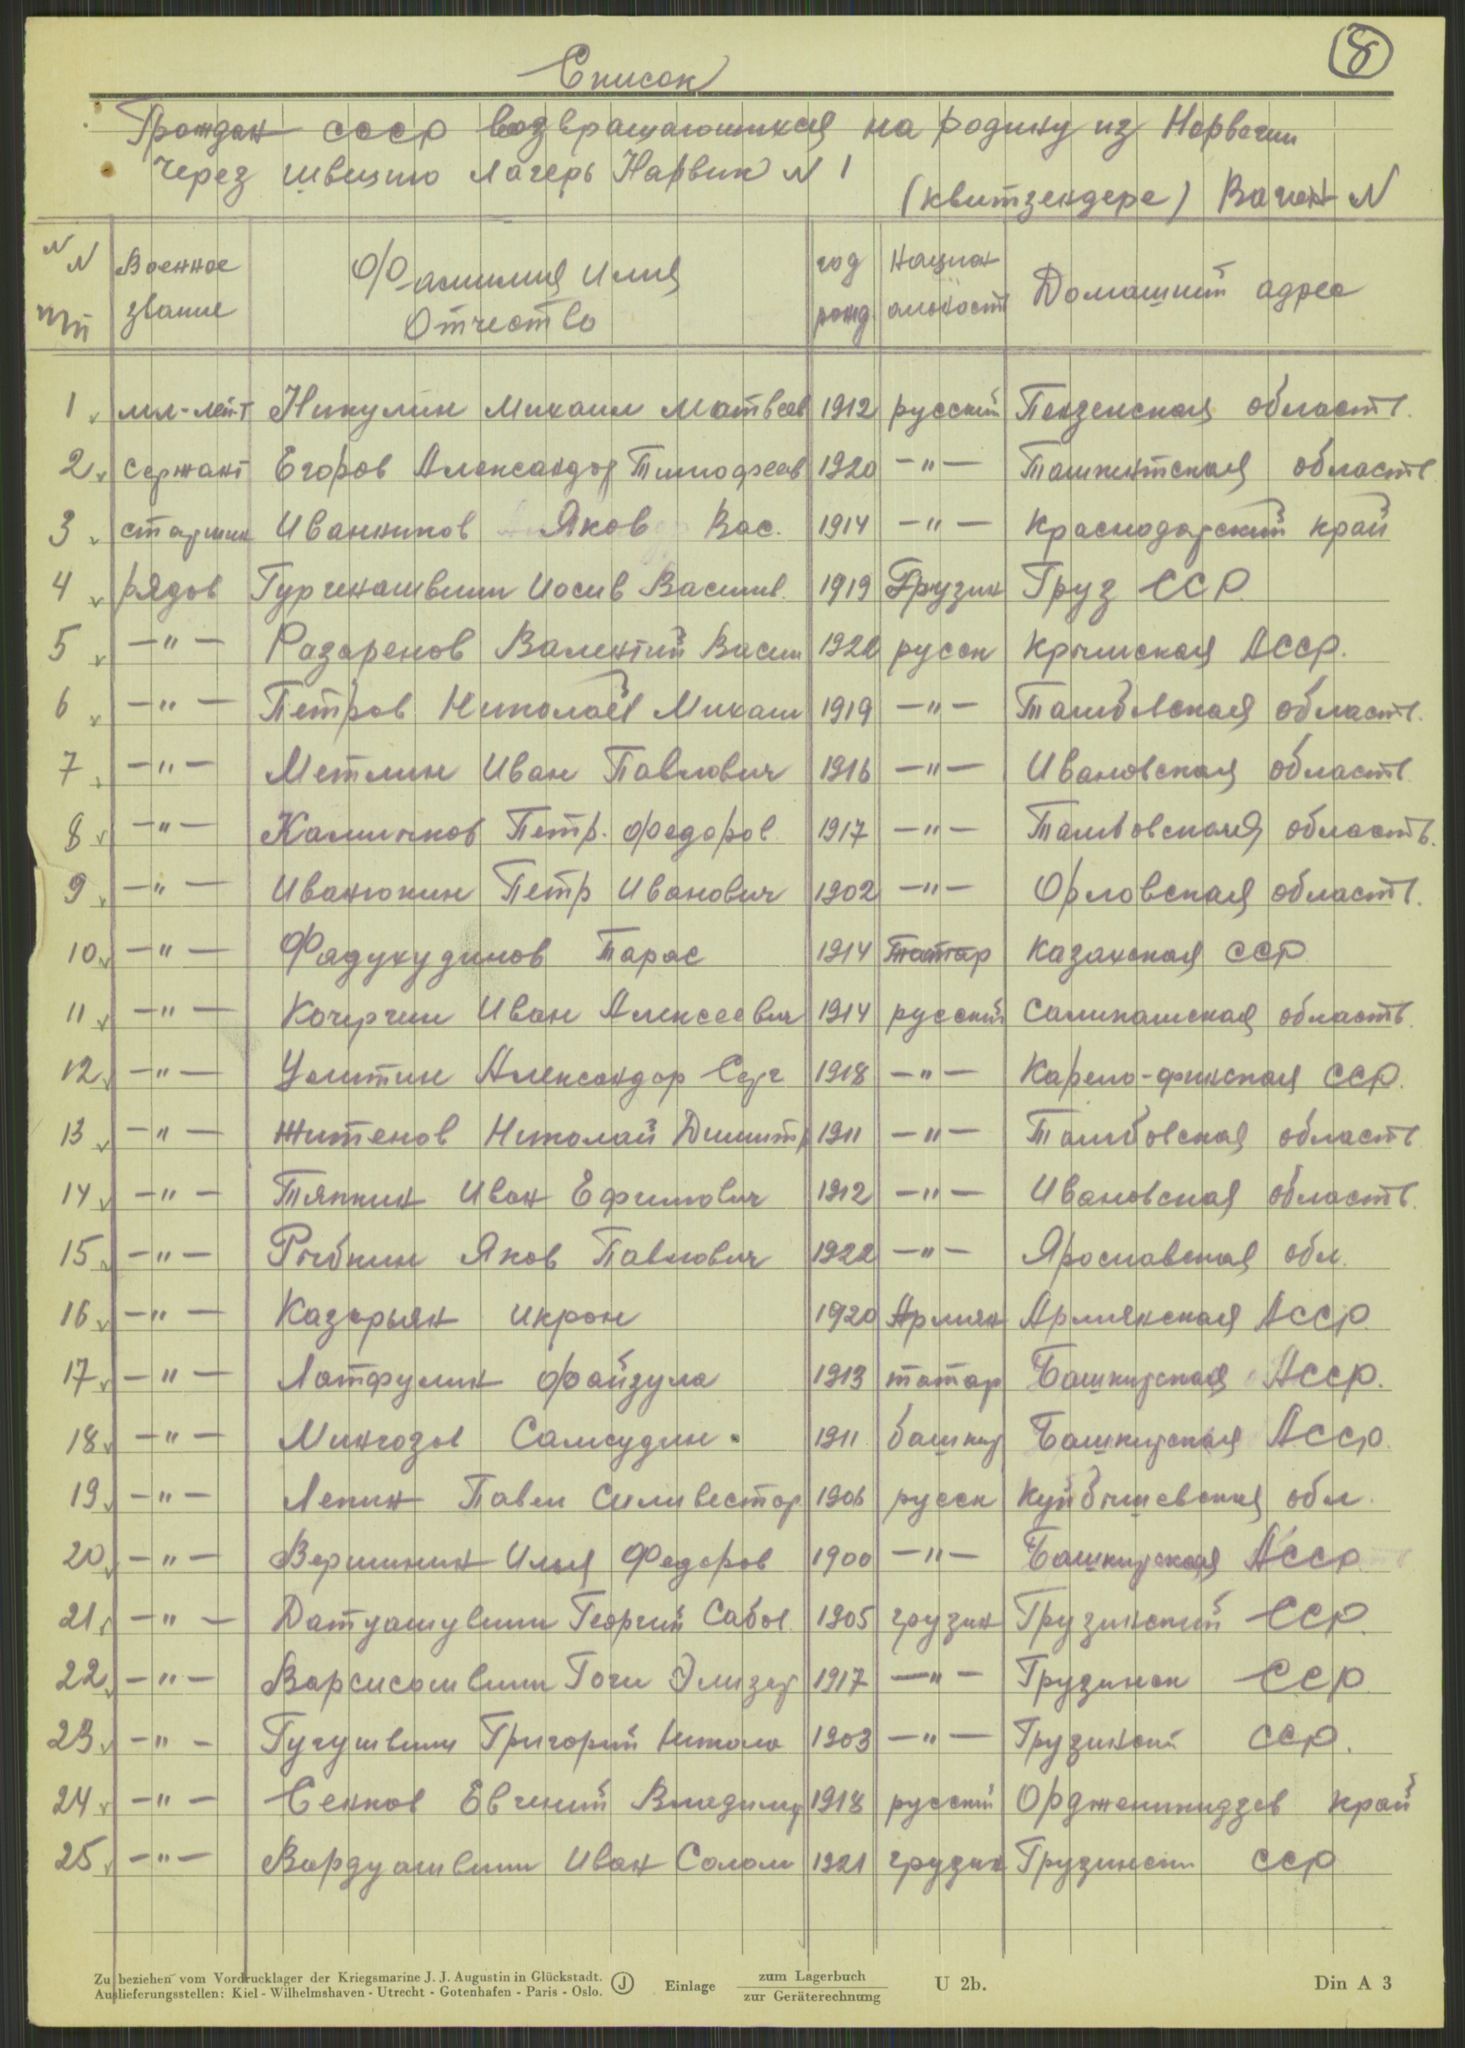 8
Список
Граждан СССР возвращающихся на родину из Норвегии
через швецию лагерь Нарвик N 1
(квитзендере) Вагон N
N N п/п Военное звание Фамилия Имя Отчество год рожд Национальност Домашний адрес
1 мл-лейт Никулин Михаил Матвеев 1912 русский Пензенская област.
2 сержант Егоров Александр Тимофеев 1920 —"— Ташкентская област
3 старшин Иванников Яков Вас. 1914 —"— Краснодарский край
4 рядов Гургенашвили Иосив Васили. 1919 Грузин Груз ССР
5 —"— Разаренов Валентий Васил русск Крымская АССР.
6 —"— Петров Николай Михаил 1919 —"— Тамбовская област.
7 —"— Метлин Иван Павлович 1916 —"— Ивановская област
8 —"— Каличков Петр. Федоров 1917 —"— Тамбовская область.
9 —"— Иванюкин Петр Иванович 1902 —"— Орловская област.
10 —"— Фадухудинов Тарас 1914 Татар Казахская ССР
11 —"— Кочергин Иван Алексеевич 1914 русский область.
12 —"— Уситин Александр Серг 1918 —"— Карело-финская ССР.
13 —"— Житенов Николай Димитр 1911 —"— Тамбовская област
14 —"— Тяпкин Иван Ефимович 1912 —"— Ивановская област.
15 —"— Рыбкин Яков Павлович 1922 —"— Ярославская обл.
16 —"— Казарьян Икрон 1920 Армян Армянская АССР
17 —"— Латфулин Файзула 1913 татар Башкирская АССР.
18 —"— Мингазов Самсудин. 1911 башкир Башкирская АССР
19 —"— Лепин Павел Силивестор 1906 русск Куйбышевская обл.
20 —"— Вершинин Илья Федоров 1900 —"— Башкирская АССР
21 —"— Датуашувили Георгий Сабов. 1905 грузин Грузинский ССР
22 —"— Варсисашвили Гоги Элизар 1917 —"— Грузинск ССР
23 —"— Гугушвили Григорий Никола 1903 —"— Грузински ССР.
24 —"— Сенков Евгений Владимир 1918 русский Орджоникидзев край
25 —"— Вардуашвили Иван Солом 1921 грузин Грузински ССР
Zu beziehen vom Vordrucklager der Kriegsmarine J. J. Augustin in Glückstadt.
Auslieferungsstellen: Kiel - Wilhelmshaven - Utrecht - Gotenhafen - Paris - Oslo.
J Einlage zum Lagerbuch zur Geräterechnung U 2b. Din A 3